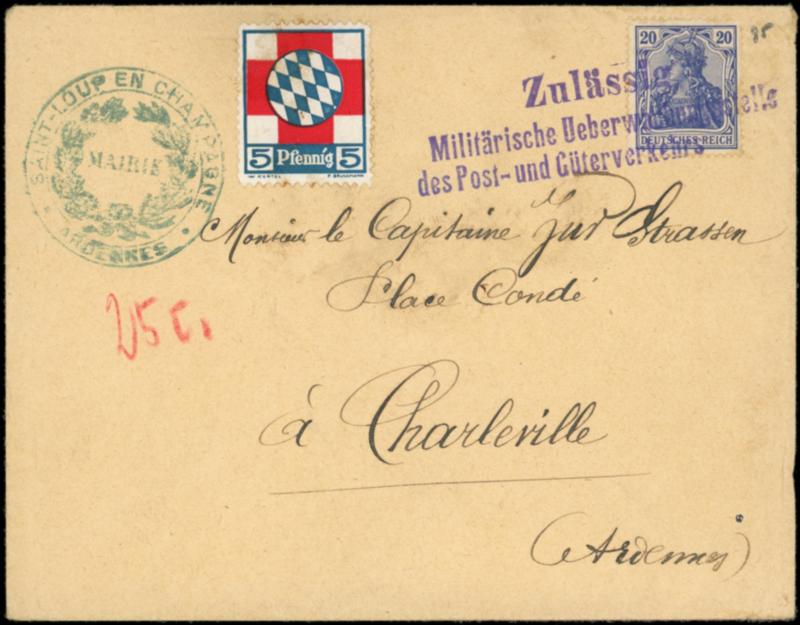 SAINT-LOUP EN CHAMPAGNE
MAIRIE
ARDENNES
5 Pfennig 5
20 20
DEUTSCHES REICH
Zulässig
Militärische Ueberwachungsstelle
des Post- und Güterverkehrs
85
Monsieur le Capitaine Zur Strassen
Place Condé
25 c.
à Charleville
(Ardennes)